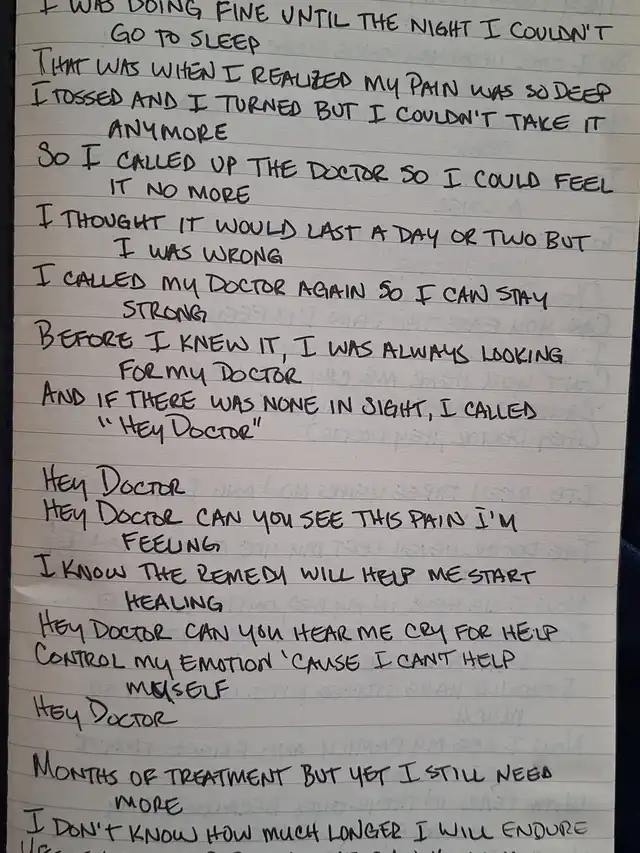 I WAS DOING FINE UNTIL THE NIGHT I COULDN'T
GO TO SLEEP
THAT WAS WHEN I REALIZED MY PAIN WAS SO DEEP
I TOSSED AND I TURNED BUT I COULDN'T TAKE IT
ANYMORE
SO I CALLED UP THE DOCTOR SO I COULD FEEL
IT NO MORE
I THOUGHT IT WOULD LAST A DAY OR TWO BUT
I WAS WRONG
I CALLED MY DOCTOR AGAIN SO I CAN STAY
STRONG
BEFORE I KNEW IT, I WAS ALWAYS LOOKING
FOR MY DOCTOR
AND IF THERE WAS NONE IN SIGHT, I CALLED
"HEY DOCTOR"
HEY DOCTOR
HEY DOCTOR CAN YOU SEE THIS PAIN I'M
FEELING
I KNOW THE REMEDY WILL HELP ME START
HEALING
HEY DOCTOR CAN YOU HEAR ME CRY FOR HELP
CONTROL MY EMOTION 'CAUSE I CAN'T HELP
MYSELF
HEY DOCTOR
MONTHS OF TREATMENT BUT YET I STILL NEED
MORE
I DON'T KNOW HOW MUCH LONGER I WILL ENDURE